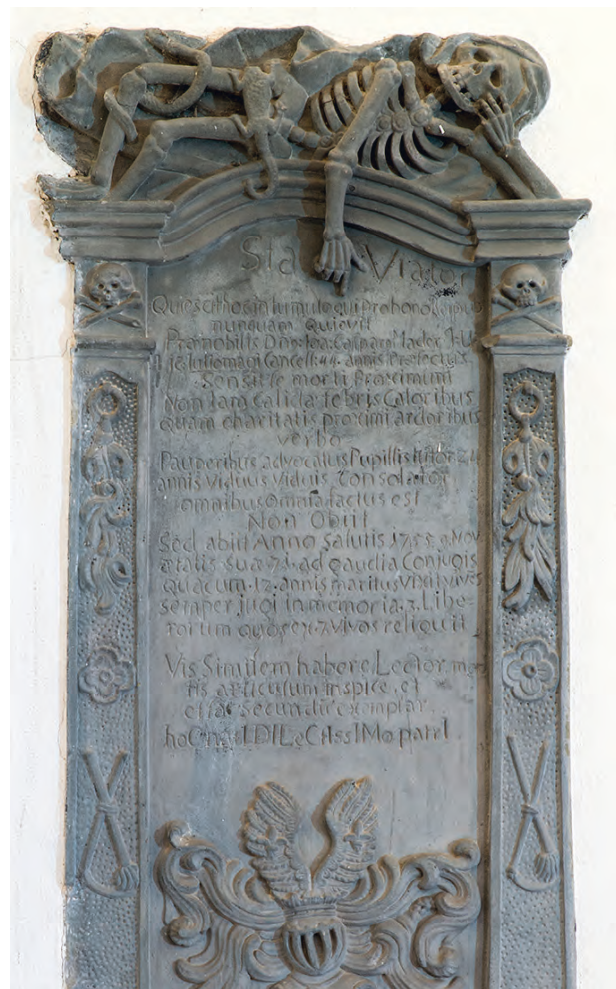 Sta Viator
Quiescit hoc in tumulo qui pro bono
nunquam Quievit
Prænobilis Dñs Ioa: Casparus
Iuliomagi Cancell: 44. annis Præfectus
Sensit se morti Proximum
Non tam Calidæ febris Caloribus
Quam charitatis proximi ardoribus
verbo
Pauperibus advocatus Pupillis tutor 24
annis Viduus Viduis Consolator
omnibus Omnia factus est
Non Obiit
Sed abiit Anno Salutis 1755 9. Nov
ætatis suæ 71. ad gaudia Conjugis
Quacum .12. annis maritus Vixit
semper jugi in memoria .3. Libe¬
rorum quos ex .7. Vivos reliquit
Vis Similem habere Lector
tis articulum inspice et
et fac Secundum exemplar
hoC natI DILeCtIssIMo patrI